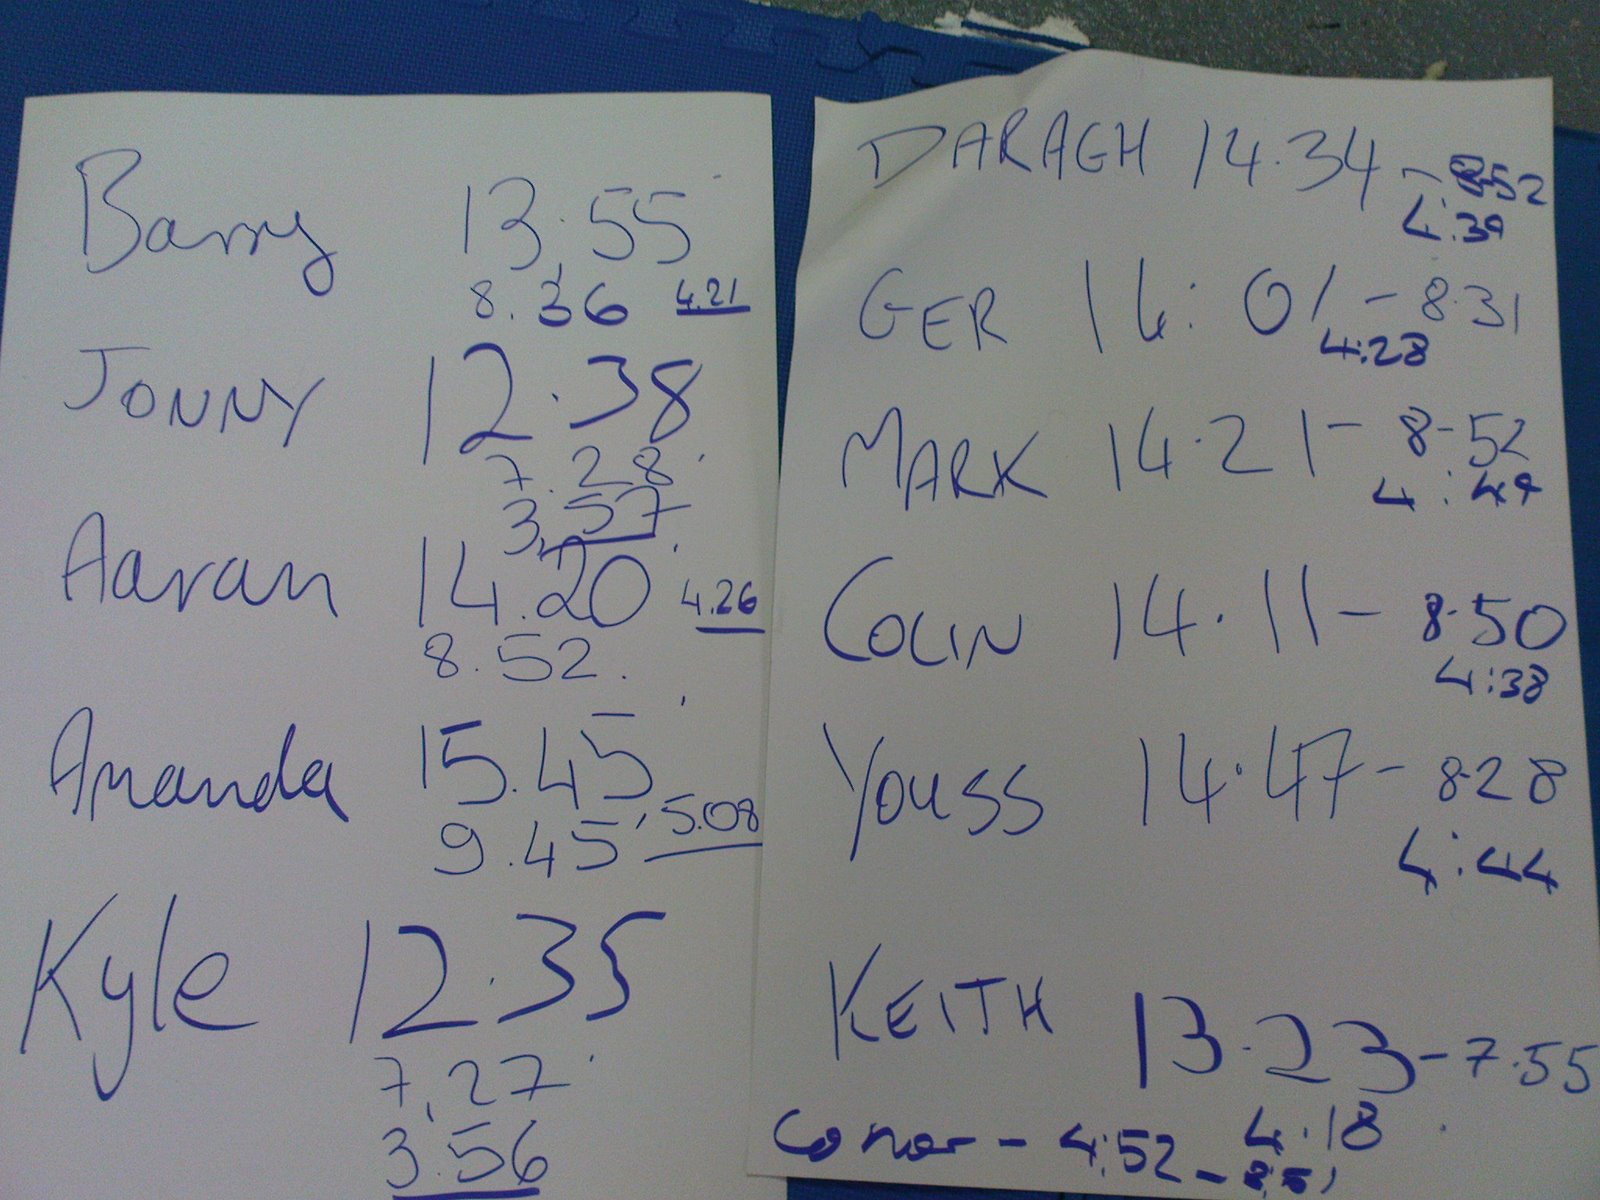 Barry 13.55
8.36 4.21
JONNY 12.38
7.28
3.57
Aaran 14.20 4.26
8.52
Amanda 15.45
9.45 5.08
Kyle 12.35
7.27
3.56
DARAGH 14.34 - 8.52
4:39
GER 14:01 - 8.31
4:28
MARK 14.21 - 8-52
4:49
COLIN 14.11 - 8.50
4:38
YOUSS 14.47 - 8.28
4:44
KEITH 13.23 - 7.55
4.18
Conor - 4:52 -